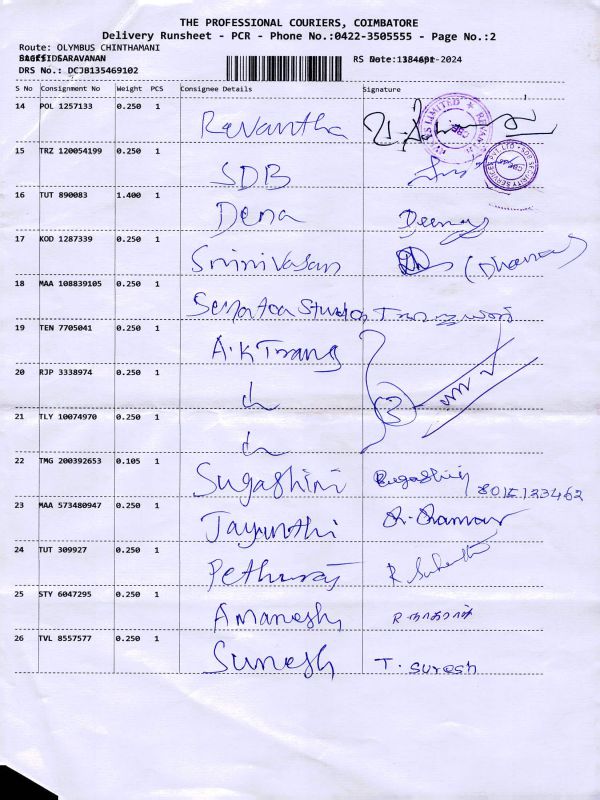 THE PROFESSIONAL COURIERS, COIMBATORE
Delivery Runsheet - PCR - Phone No.:0422-3505555 - Page No.:2
Route: OLYMBUS CHINTHAMANI
SARAVANAN
DRS No.: DCJB135469102
S No Consignment No Weight PCS Consignee Details Signature
14 POL 1257133 0.250 1 Revantha
15 TRZ 120054199 0.250 1 SDB
16 TUT 890083 1.400 1 Dena Deena
17 KOD 1287339 0.250 1 Srinivasan (Dhana)
18 MAA 108839105 0.250 1
19 TEN 7705041 0.250 1 A.K Trang
20 RJP 3338974 0.250 1
21 TLY 10074970 0.250 1 3
22 TMG 200392653 0.105 1 Sugashini Sugashini
23 MAA 573480947 0.250 1 Jayanthi
24 TUT 309927 0.250 1 Pethuraj
25 STY 6047295 0.250 1 Amanesh
26 TVL 8557577 0.250 1 Suresh T. Suresh